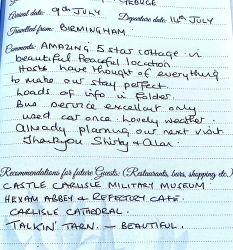 Arrival date: 9th JULY Departure date: 14th JULY
Travelled from: BIRMINGHAM
Comments: AMAZING 5 star cottage in
beautiful Peaceful location
Hosts have thought of everything
to make our stay perfect
Loads of info in folder.
Bus service excellent only
used car once. Lovely weather.
Already planning our next visit
Thankyou Shirley & Alan.
Recommendations for future Guests: (Restaurants, bars, shopping etc.)
CASTLE CARLISLE MILITARY MUSEUM.
HEXAM ABBEY & REFECTORY CAFE.
CARLISLE CATHEDRAL.
TALKIN TARN. – BEAUTIFUL.